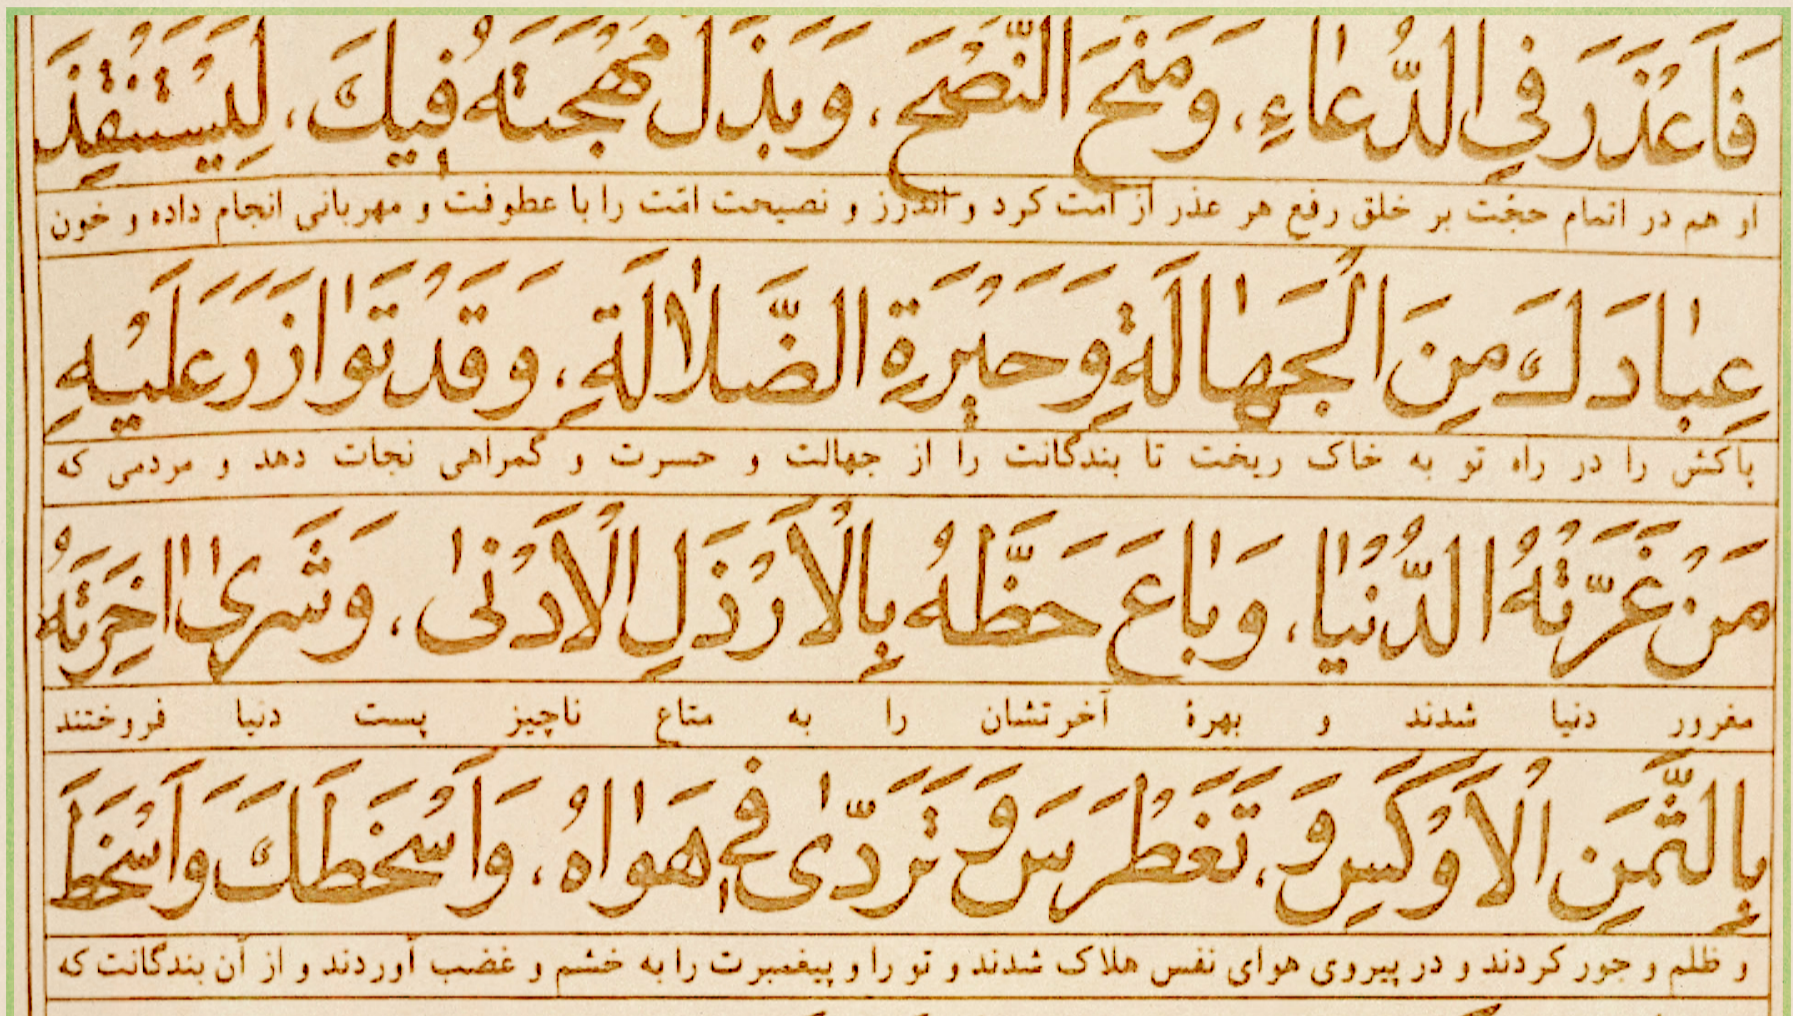 فَاَعْذَرَ فِی الدُّعاٰءِ، وَمَنَحَ النُّصْحَ، وَبَذَلَ مُهْجَتَهُ فیٖكَ، لِیَسْتَنْقِذَ
او هم در اتمام حجّت بر خلق رفع هر عذر از امّت کرد و اندرز و نصیحت امّت را با عطوفت و مهربانی انجام داده و خون
عِباٰدَكَ مِنَ الْجَهاٰلَةِ وَحَیْرَةِ الضَّلاٰلَةِ، وَقَدْ تَوٰازَرَ عَلَیْهِ
پاکش را در راه تو به خاک ریخت تا بندگانت را از جهالت و حسرت و گمراهی نجات دهد و مردمی که
مَنْ غَرَّتْهُ الدُّنْیاٰ، وَباٰعَ حَظَّهُ بِالْاَرْذَلِ الْاَدْنیٰ، وَشَریٰ اٰخِرَتَهُ
مغرور دنیا شدند و بهرهٔ آخرتشان را به متاع ناچیز پست دنیا فروختند
بِالثَّمَنِ الْاَوْكَسِ وَ، تَغَطْرَسَ وَ تَرَدّیٰ فیٖ هَوٰاهُ، وَاَسْخَطَكَ وَاَسْخَطَ
و ظلم و جور کردند و در پیروی هوای نفس هلاک شدند و تو را و پیغمبرت را به خشم و غضب آوردند و از آن بندگانت که